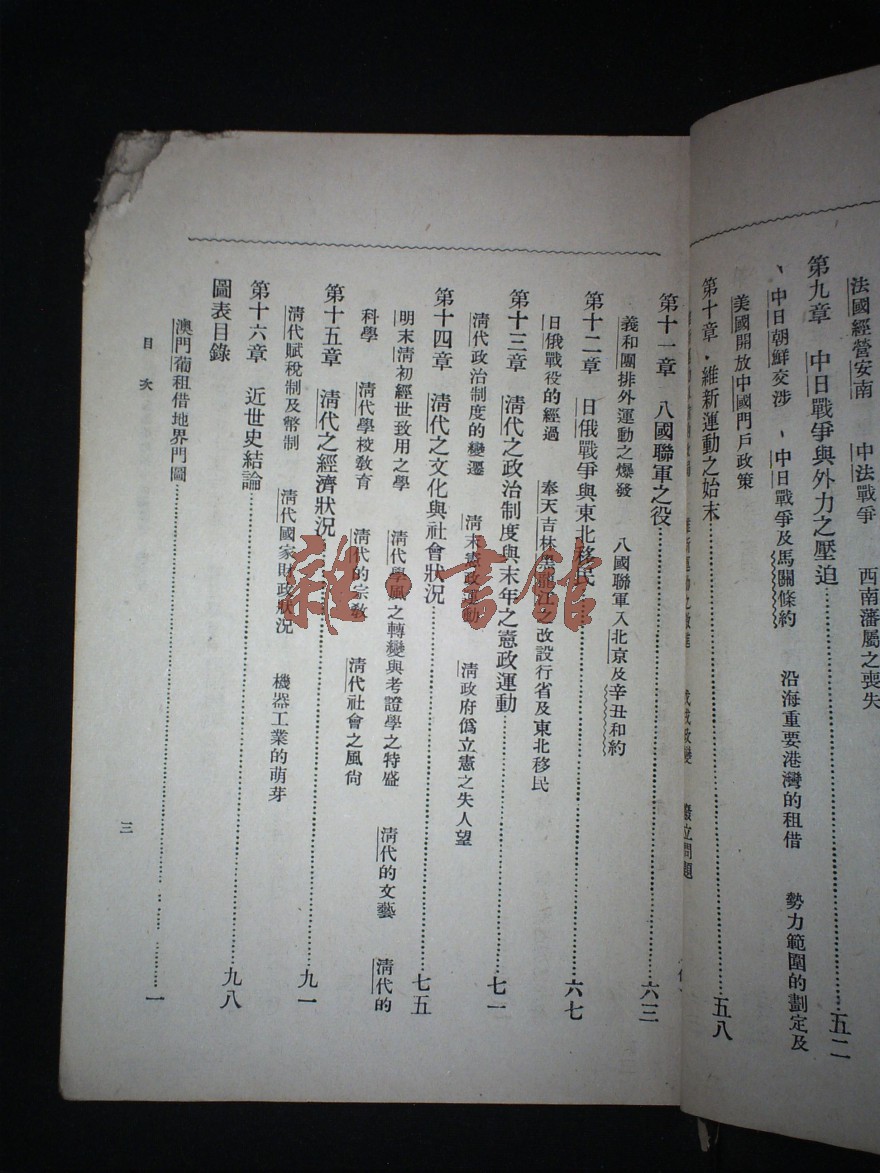 法國經營安南　中法戰爭　西南藩屬之喪失
第九章　中日戰爭與外力之壓迫…五二
中日朝鮮交涉　中日戰爭及馬關條約　沿海重要港灣的租借　勢力範圍的劃定及
美國開放中國門戶政策
第十章　維新運動之始末…五八
維新運動之激進　戊戌政變　廢立問題
第十一章　八國聯軍之役…六三
義和團排外運動之爆發　八國聯軍入北京及辛丑和約
第十二章　日俄戰爭與東北移民…六七
日俄戰役的經過　奉天吉林黑龍江之改設行省及東北移民
第十三章　清代之政治制度與末年之憲政運動…七一
清代政治制度的變遷　清末憲政運動　清政府僞立憲之失人望
第十四章　清代之文化與社會狀況…七五
明末清初經世致用之學　清代學風之轉變與考證學之特盛　清代的文藝　清代的
科學　清代學校教育　清代的宗教　清代社會之風尙
第十五章　清代之經濟狀況…九一
清代賦稅制及幣制　清代國家財政狀況　機器工業的萌芽
第十六章　近世史結論…九八
圖表目錄
澳門葡租借地界門圖…一
目次
三
雜·書館